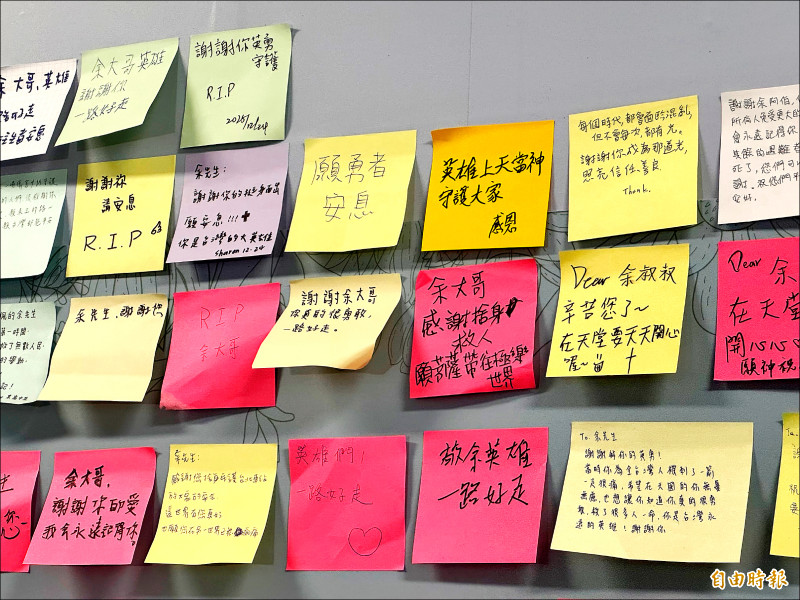 大哥,英雄
余大哥英雄
謝謝你
一路好走
謝謝你英勇
守護
R.I.P
2025/12/24
謝謝祢
請安息
R.I.P
余先生:
謝謝你的挺身而出
願安息!!!
你是台灣的大英雄
Sharon 12.24
願勇者
安息
英雄上天當神
守護大家
感恩
每個時代,都會面臨混亂,
但不會每次都有光。
謝謝你成為那道光,
照亮信任善良
Thank.
謝謝余阿伯,
所有人免受更大的
會永遠記得你
死了,您們可
安好。
的余先生
第一時間
余先生,謝謝你
R I P
余大哥
謝謝余大哥
你真的很勇敢,
一路好走。
余大哥
感謝捨身
救人
願菩薩帶往極樂
世界
Dear 余叔叔
辛苦您了~
在天堂要天天開心
喔~
Dear 余
在天堂
開心
願神祝
余大哥,
謝謝你的愛
我會永遠記得你。
余先生:
英雄們!
一路好走
敬余英雄
一路好走
To. 余先生
謝謝你的英勇!
當時你為全台灣人擋刀了一前
一定很痛,希望在天國的你無憂
無慮,也想讓你知道你真的很勇
敢,救了很多人一命,你是台灣永
遠的英雄!謝謝你
To.
自由時報